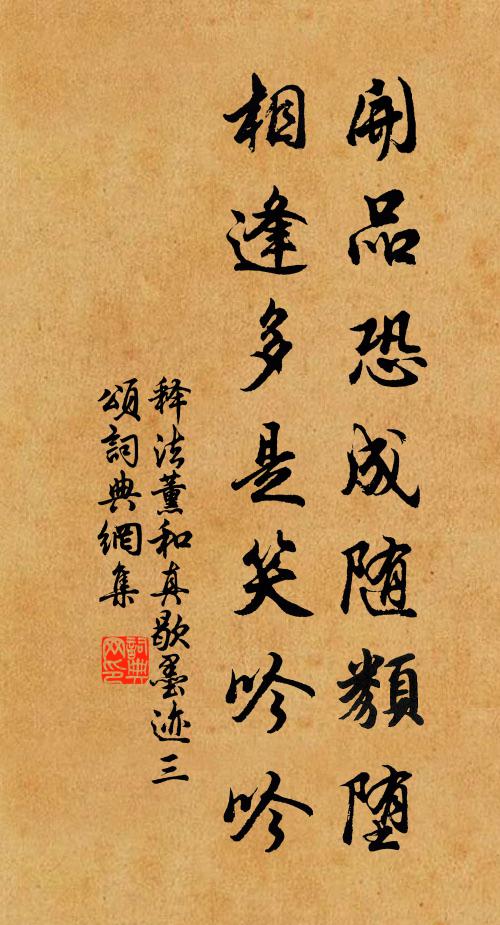 開品恐成随類堕
相逢多是笑吟吟
释法薰和真歇墨迹三
頌詞典網集
詞典网印